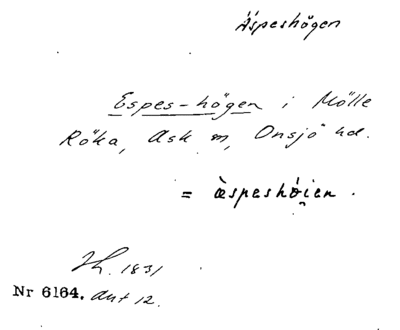 Äspeshögen
Espes-högen i Mölle
Röka, Ask sn, Onsjö hd.
= æ̀speshö́i̯en.
Th. 1831
Nr 6164. Ant 12.